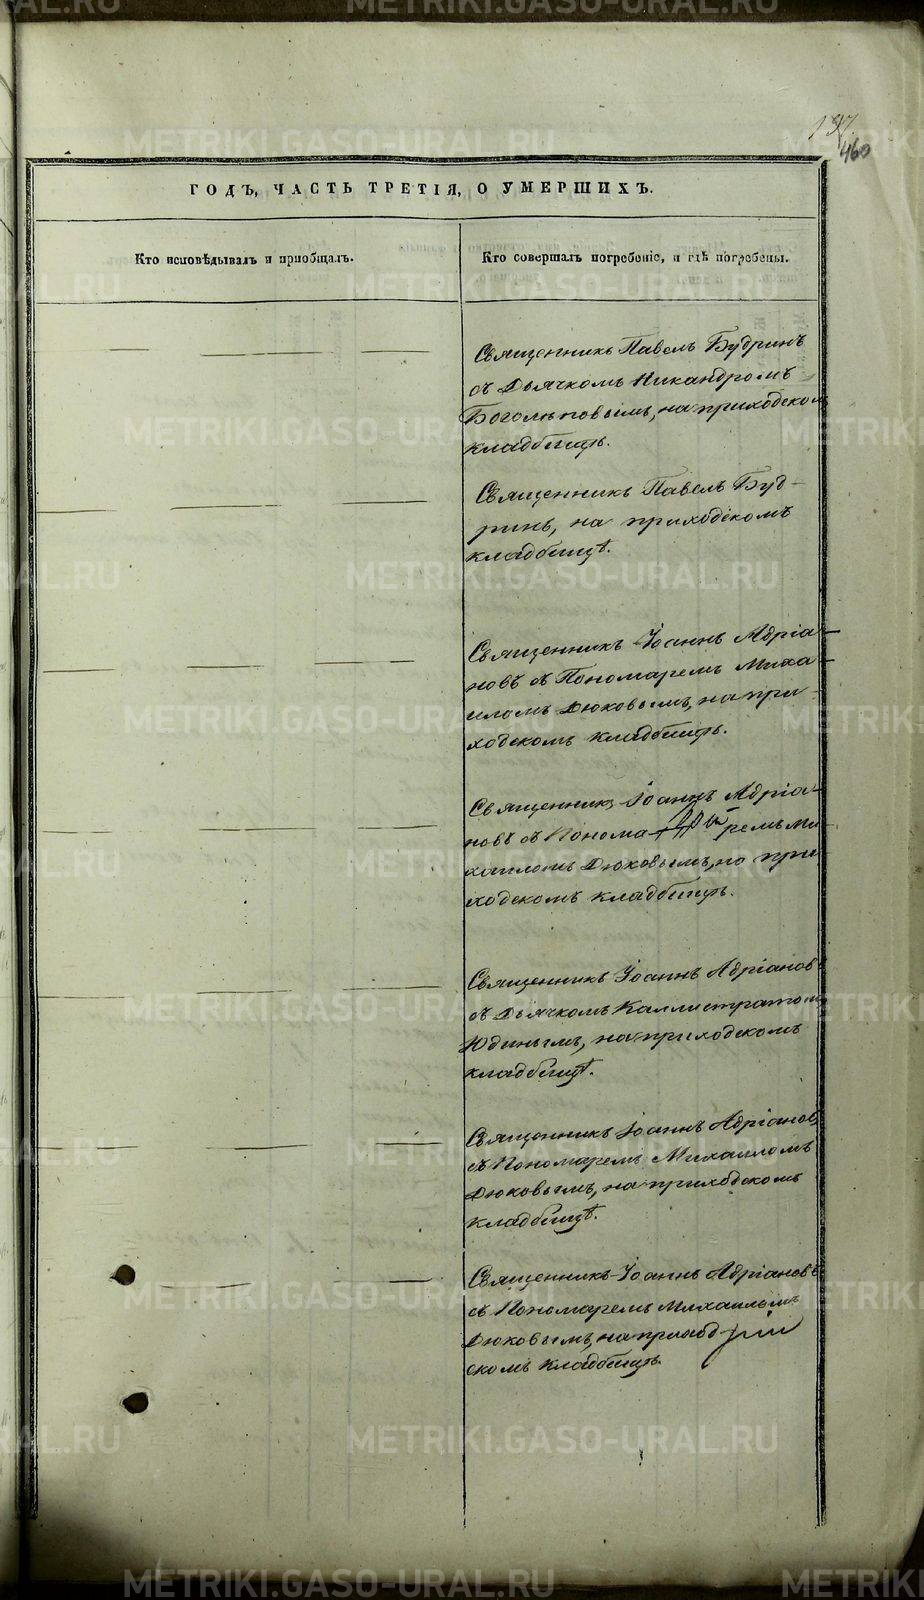 137.
460
ГОДЪ, ЧАСТЬ ТРЕТІЯ, О УМЕРШИХЪ.
Кто исповѣдывалъ и пріобщалъ.
Кто совершалъ погребеніе, и гдѣ погребены.
Священникъ Павелъ Будринъ
съ Дьячкомъ Никандромъ
Боголѣповымъ, на приходском
кладбищѣ.
Священникъ Павелъ Буд-
ринъ, на приходскомъ
кладбищѣ.
Священникъ Іоаннъ Адріа-
новъ съ Пономаремъ Миха-
иломъ Дюковымъ, на при-
ходскомъ кладбищѣ.
Священникъ Іоаннъ Адріа-
новъ съ Понома-ремъ Ми-
хаиломъ Дюковымъ, на при-
ходскомъ кладбищѣ.
Священникъ Іоаннъ Адріановъ
съ Дьячкомъ Каллистратомъ
Юдинымъ, на приходскомъ
кладбищѣ.
Священникъ Іоаннъ Адріановъ
съ Пономаремъ Михаиломъ
Дюковымъ, на приходскомъ
кладбищѣ.
Священникъ Іоаннъ Адріановъ
съ Пономаремъ Михаиломъ
Дюковымъ, на приход
скомъ кладбищѣ.
METRIKI.GASO-URAL.RU